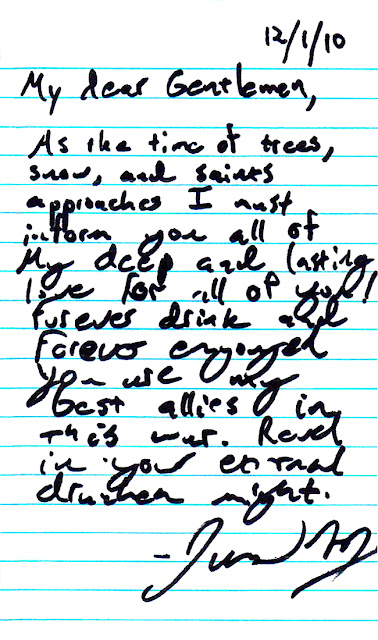 12/1/10
My dear Gentlemen,
As the time of trees,
snow, and saints
approaches I must
inform you all of
My deep and lasting
love for all of you!
Forever drink and
forever enjoyed
you are my
best allies in
this war. Revel
in your eternal
drunken might.